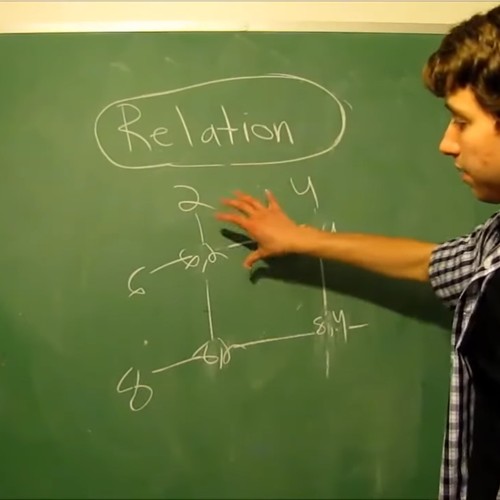 Relation
2 4
6 6,2
8 8,4